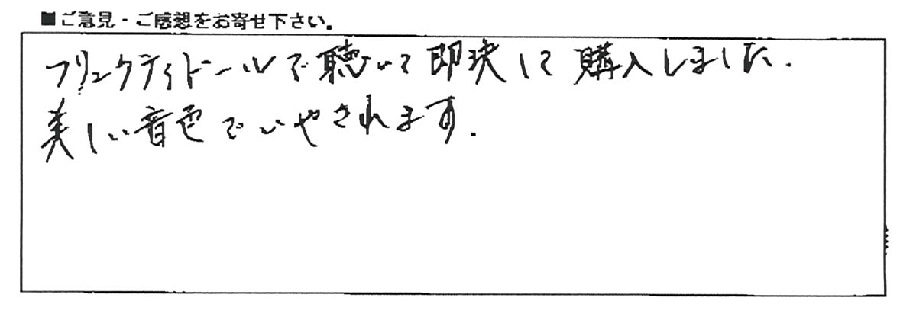 ■ご意見・ご感想をお寄せ下さい。
フリンクティドールで聴いて即決して購入しました.
美しい音色でいやされます.